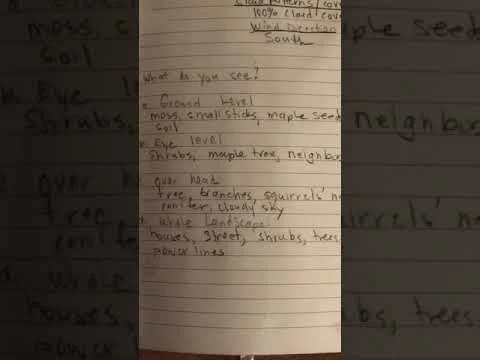 100% Cloud cove
Wind Direction
South
What do you see?
Ground Level
moss, small sticks, maple seed
soil
Eye level
Shrubs, maple tree, neighbor
over head
tree, branches, squirrels' ne
conifer, cloudy sky
Whole Landscape
houses, street, shrubs, trees
power lines